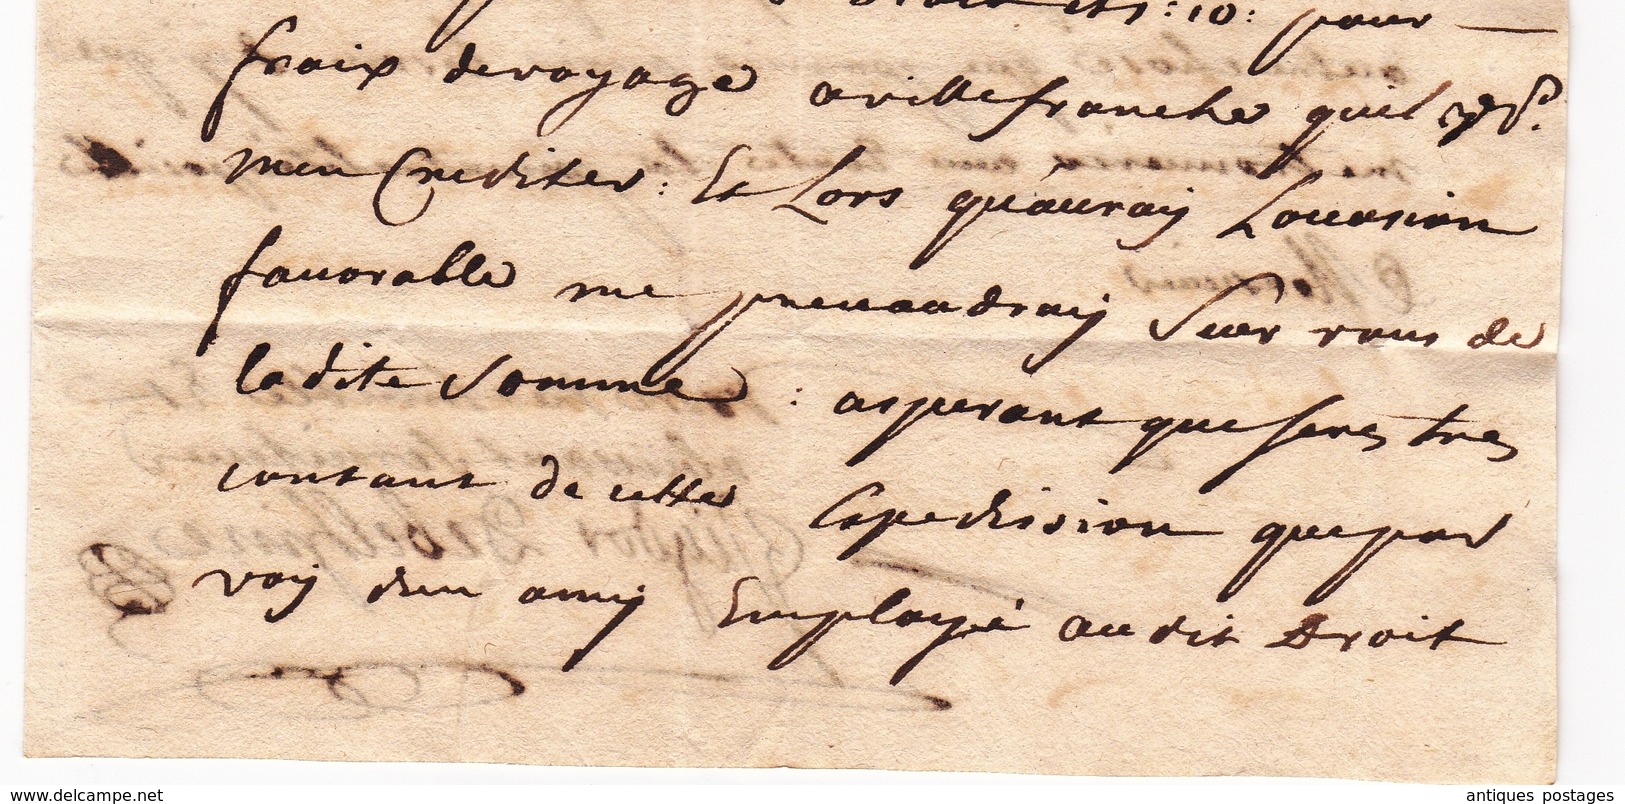 droit ets : 10 : pour
fraix devoyage avillefranche quil
men Crediter : Et Lors qu'auray Loucasion
favorable me prevaudray Suer vous de
ladite Somme : asperant que seres tres
contant de cette Expedision que par
voy dun amy Employé audit Droit
www.delcampe.net
antiques postages